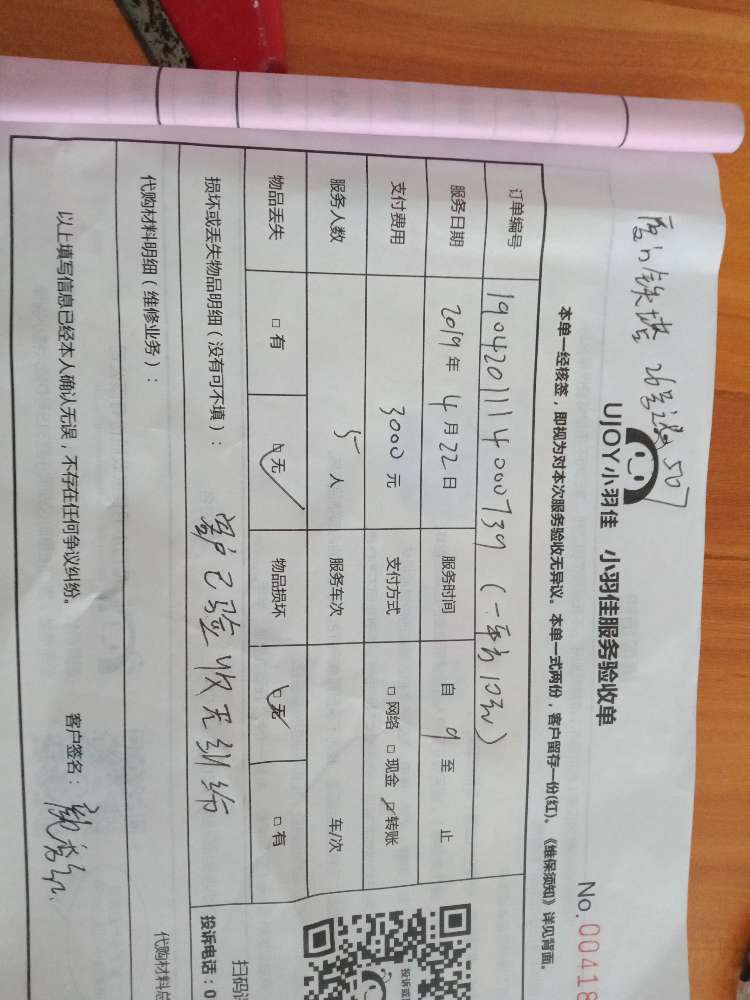 厦门铁塔 26号楼507
UJOY小羽佳 小羽佳服务验收单
No.00418
本单一经核签，即视为对本次服务验收无异议。本单一式两份，客户留存一份(红)。《维保须知》详见背面。
订单编号 190420111400739
服务日期 2019年4月22日 服务时间 自 9 至 止
支付费用 3000元 支付方式 □网络 □现金 ☑转账
服务人数 5人 服务车次 车/次
物品丢失 □有 ☑无 物品损坏 ☑无 □有
损坏或丢失物品明细（没有可不填）：
已验收无纠纷
代购材料明细（维修业务）：
代购材料总
以上填写信息已经本人确认无误，不存在任何争议纠纷。 客户签名：
扫码
投诉电话：0
投诉或